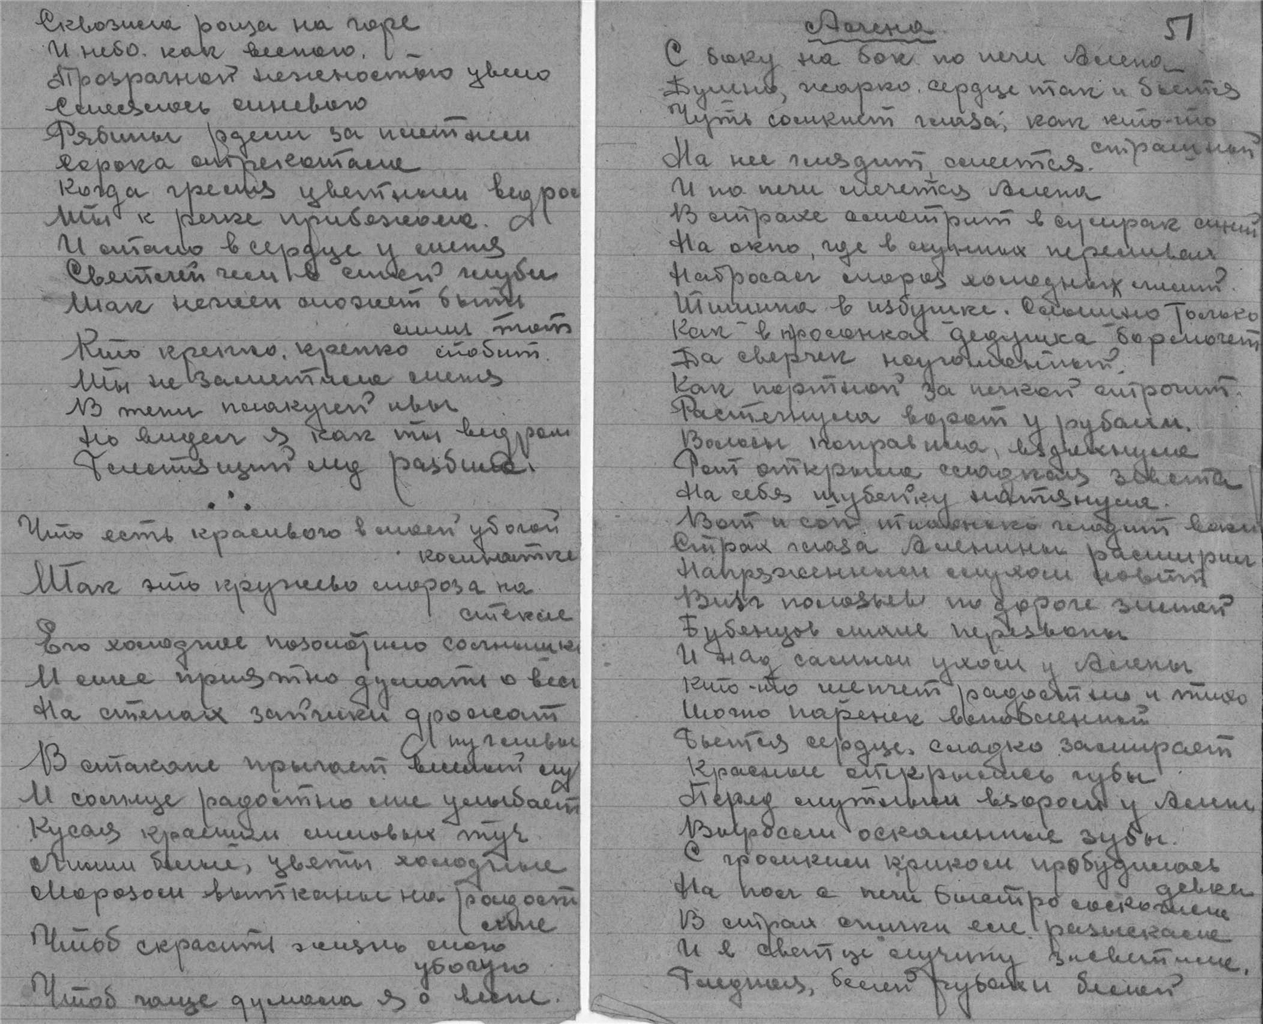 Сквозила роща на горе
И небо. как весною,
Прозрачной нежностью цвело
Смеялось синевою
Рябины рдели за плетнем
Сорока стрекотала
Когда гремя цветными ведром
Ты к речке прибежала.
И стало в сердце у меня
Светлей чем в синей глуби
Так нежен может быть
лишь тот
Кто крепко, крепко любит.
Ты не заметила меня
В тени плакучей ивы
Но видел я как ты ведром
Блестящий лед разбила.
Что есть красивого в моей убогой
комнатке
Так это кружево мороза на
стекле
Его холодное позолотило солнышко
И мне приятно думать о весне
На стенах зайчики дрожат
пугливые
В стакане прыгает веселый луч
И солнце радостно мне улыбается
Кусая краешки лиловых туч
Лилии белые, цветы холодные
Морозом вытканы на радость
мне
Чтоб скрасить жизнь мою
убогую
Чтоб чаще думала я о весне.
51
Алена
С боку на бок по печи Алена
Душно, жарко. сердце так и бьется
Чуть сомкнет глаза, как кто-то
страшной
На нее глядит смеется.
И по печи мечется Алена
В страхе смотрит в сумрак синий
На окно, где в лунных переливах
Набросал мороз холодных лилий.
Тишина в избушке. Слышно только
Как в просонках дедушка бормочет
Да сверчек неугомонный
Как портной за печкой строчит.
Растегнула ворот у рубахи.
Волосы поправила, вздохнула
Рот открыла сладкая зевота
На себя шубейку натянула.
Вот и сон тихонько гладит веки
Страх глаза Аленины расширил
Напряженным слухом ловит
Визг полозьев по дороге зимней
Бубенцов лихие перезвоны
И над самым ухом у Алены
Кто-то шепчет радостно и тихо
Точно паренек влюбленный
Бьется сердце, сладко замирает
Красные открылись губы
Перед мутным взором у Алены
Выросли оскаленные зубы.
С громким криком пробудилась
девка
На пол с печи быстро соскочила
В страхе спички еле разыскала
И в светце лучину засветила.
Бледная, белей рубахи белой